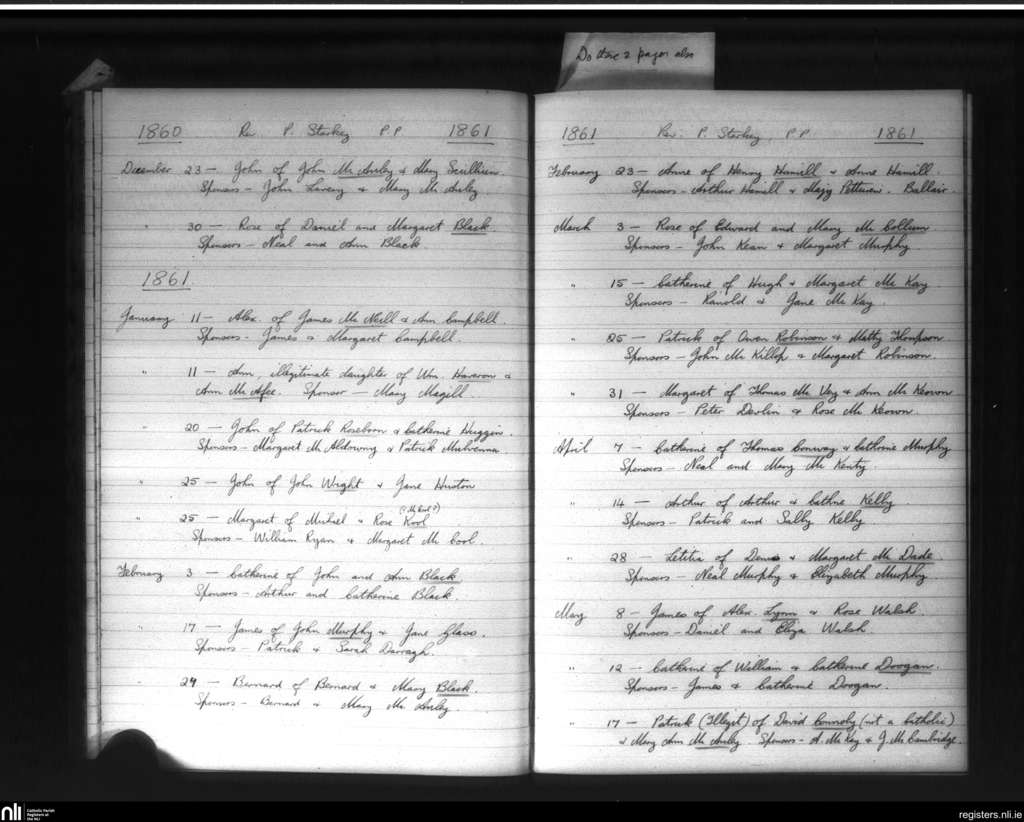 Do these 2 pages also
1860 Rev. P. Starkey P.P. 1861
December 23 — John of John Mc Auley & Mary Scullion.
Sponsors - John Lavery & Mary Mc Auley
" 30 — Rose of Daniel and Margaret Black.
Sponsors - Neal and Ann Black.
1861.
January 11 — Alex. of James Mc Neill & Ann Campbell.
Sponsors - James & Margaret Campbell.
" 11 — Ann, illegitimate daughter of Wm. Haveron &
Ann Mc Afee. Sponsor — Mary Magill.
" 20 — John of Patrick Roseborn & Catherine Huggin.
Sponsors - Margaret Mc Aldowny & Patrick Mulvenna.
" 25 — John of John Wright & Jane Huston
(? Mc Cool ?)
" 25 — Margaret of Michael & Rose Kool
Sponsors - William Ryan & Margaret Mc Cool.
February 3 — Catherine of John and Ann Black
Sponsors - Arthur and Catherine Black.
" 17 — James of John Murphy & Jane Glass.
Sponsors - Patrick & Sarah Darragh.
" 24 — Bernard of Bernard & Mary Black.
Sponsors - Bernard & Mary Mc Auley
1861 Rev. P. Starkey, P.P. 1861
February 23 — Anne of Henry Hamill & Anne Hamill.
Sponsors - Arthur Hamill & Ballair.
March 3 — Rose of Edward and Mary Mc Collum
Sponsors - John Kean & Margaret Murphy
" 15 — Catherine of Hugh & Margaret Mc Kay
Sponsors - Ranold & Jane Mc Kay.
" 25 — Patrick of Owen Robinson & Matty Thompson
Sponsors - John Mc Killop & Margaret Robinson.
" 31 — Margaret of Thomas Mc Vey & Ann Mc Keown
Sponsors - Peter Devlin & Rose Mc Keown.
April 7 — Catherine of Thomas Conway & Catherine Murphy
Sponsors - Neal and Mary Mc Kenty.
" 14 — Arthur of Arthur & Cathne Kelby
Sponsors - Patrick and Sally Kelby.
" 28 — Letitia of Denis & Margaret Mc Dade
Sponsors - Neal Murphy & Elizabeth Murphy
May 8 — James of Alex. Lynn & Rose Walsh.
Sponsors - Daniel and Eliza Walsh.
" 12 — Catherine of William & Catherine Doogan.
Sponsors - James & Catherine Doogan.
" 17 — Patrick (Illegit) of David Connoly (not a Catholic)
& Mary Ann Mc Auley. Sponsors - A. Mc Kay & J. Mc Cambridge.
nli Catholic Parish
Registers at
the NLI
registers.nli.ie